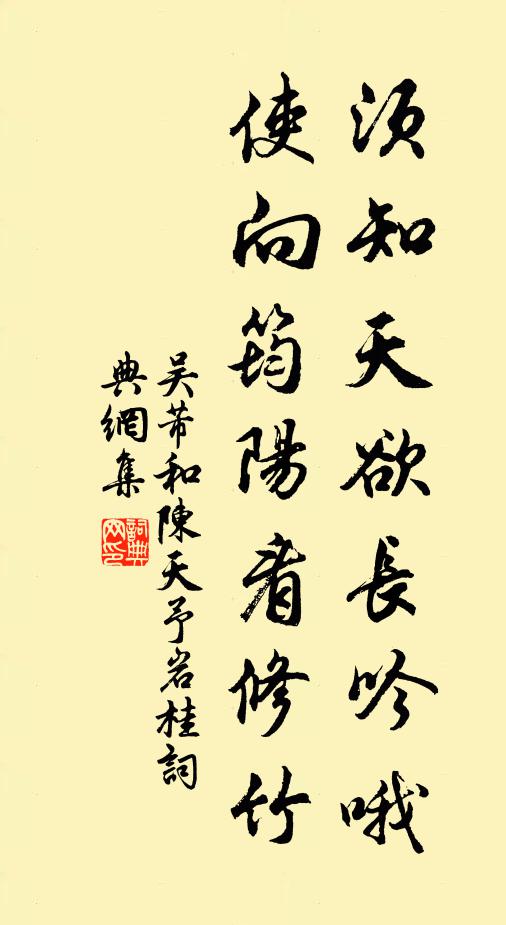 須知天欲長吟哦
使向筠陽看修竹
吴芾和陳天予岩桂詞
典網集
詞典網印